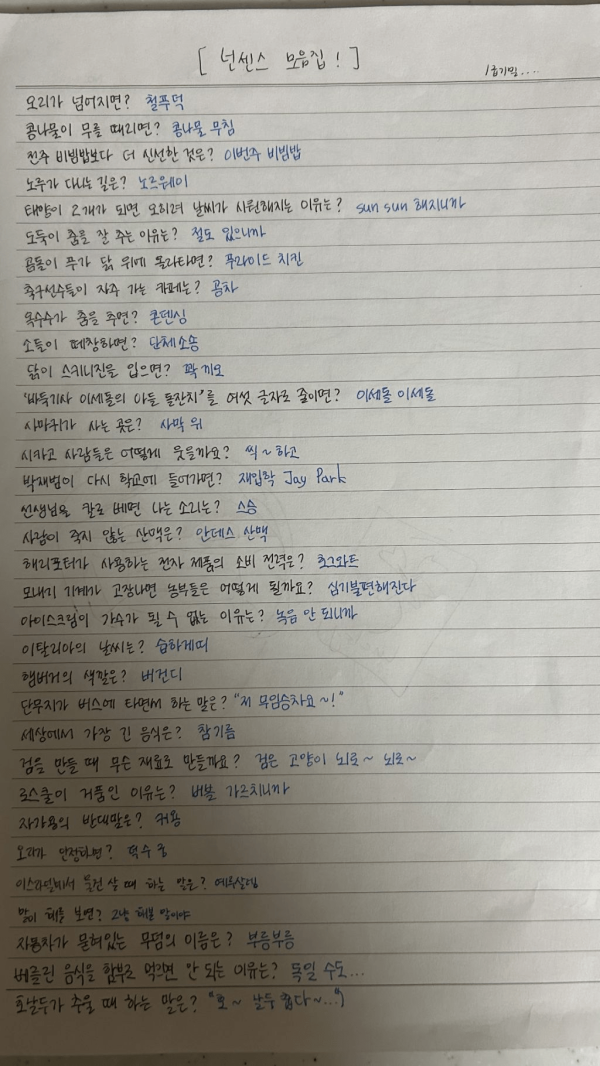 [ 넌센스 모음집! ]
1급기밀....
오리가 넘어지면? 철푸덕
콩나물이 무를 때리면? 콩나물 무침
전주 비빔밥보다 더 신선한 것은? 이번주 비빔밥
노루가 다니는 길은? 노르웨이
태양이 2개가 되면 오히려 날씨가 시원해지는 이유는? sun sun 해지니까
도둑이 춤을 잘 추는 이유는? 절도 있으니까
곰돌이 푸가 닭 위에 올라타면? 푸라이드 치킨
축구선수들이 자주 가는 카페는? 공차
옥수수가 춤을 추면? 콘댄싱
소들이 떼창하면? 단체소송
닭이 스키니진을 입으면? 꽉끼오
'바둑기사 이세돌의 아들 돌잔치'를 여섯 글자로 줄이면? 이세돌 이세돌
사마귀가 사는 곳은? 사막 위
시카고 사람들은 어떻게 웃을까요? 씩~하고
박재범이 다시 학교에 들어가면? 재입학 Jay Park
선생님을 칼로 베면 나는 소리는? 스승
사람이 죽지 않는 산맥은? 안데스 산맥
해리포터가 사용하는 전자 제품의 소비 전력은? 호그와트
모내기 기계가 고장나면 농부들은 어떻게 될까요? 심기불편해진다
아이스크림이 가수가 될 수 없는 이유는? 녹음 안 되니까
이탈리아의 날씨는? 습하게띠
햄버거의 색깔은? 버건디
단무지가 버스에 타면서 하는 말은? "저 무임승차요~!"
세상에서 가장 긴 음식은? 참기름
검을 만들 때 무슨 재료로 만들까요? 검은 고양이 뇌로~ 뇌로~
로스쿨이 거품인 이유는? 버블 가르치니까
자가용의 반대말은? 커용
오리가 단정하면? 덕수궁
이스라엘에서 물건 살 때 하는 말은? 예루살렘
말이 해를 보면? 그냥 해본 말이야
사용자가 묻혀있는 무덤의 이름은? 부릉부릉
베를린 음식을 함부로 먹으면 안 되는 이유는? 독일 수도...
호날두가 추울 때 하는 말은? "호~ 날두 춥다~..."